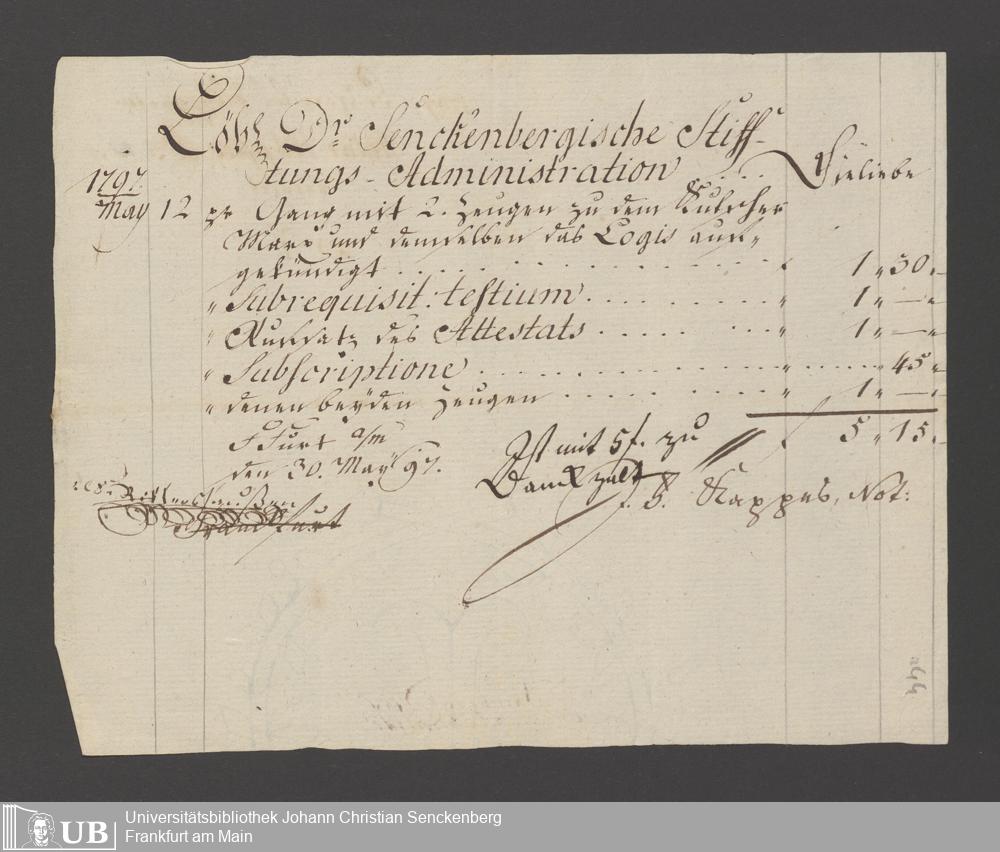 Löbl. Dr. Senckenbergische Stiff-
tungs-Administration
1797.
May 12 pr Gang mit 2. Zeugen zu dem Kutscher
Marx und demselben das Logis auf-
gekündigt . . . f 1 " 30 "
" Subrequisit. testium . . . " 1 " — "
" Aufsatz des Attestats . . . " 1 " — "
" Subscriptione . . . " . . . 45 "
" denen beyden Zeugen . . . " 1 " — "
f 5 " 15 "
FFurt a/m
den 30. May 97.
Ist mit 5 f. zu
Danck zalt
Kappes, Not:
Frankfurt
UB
Universitätsbibliothek Johann Christian Senckenberg
Frankfurt am Main